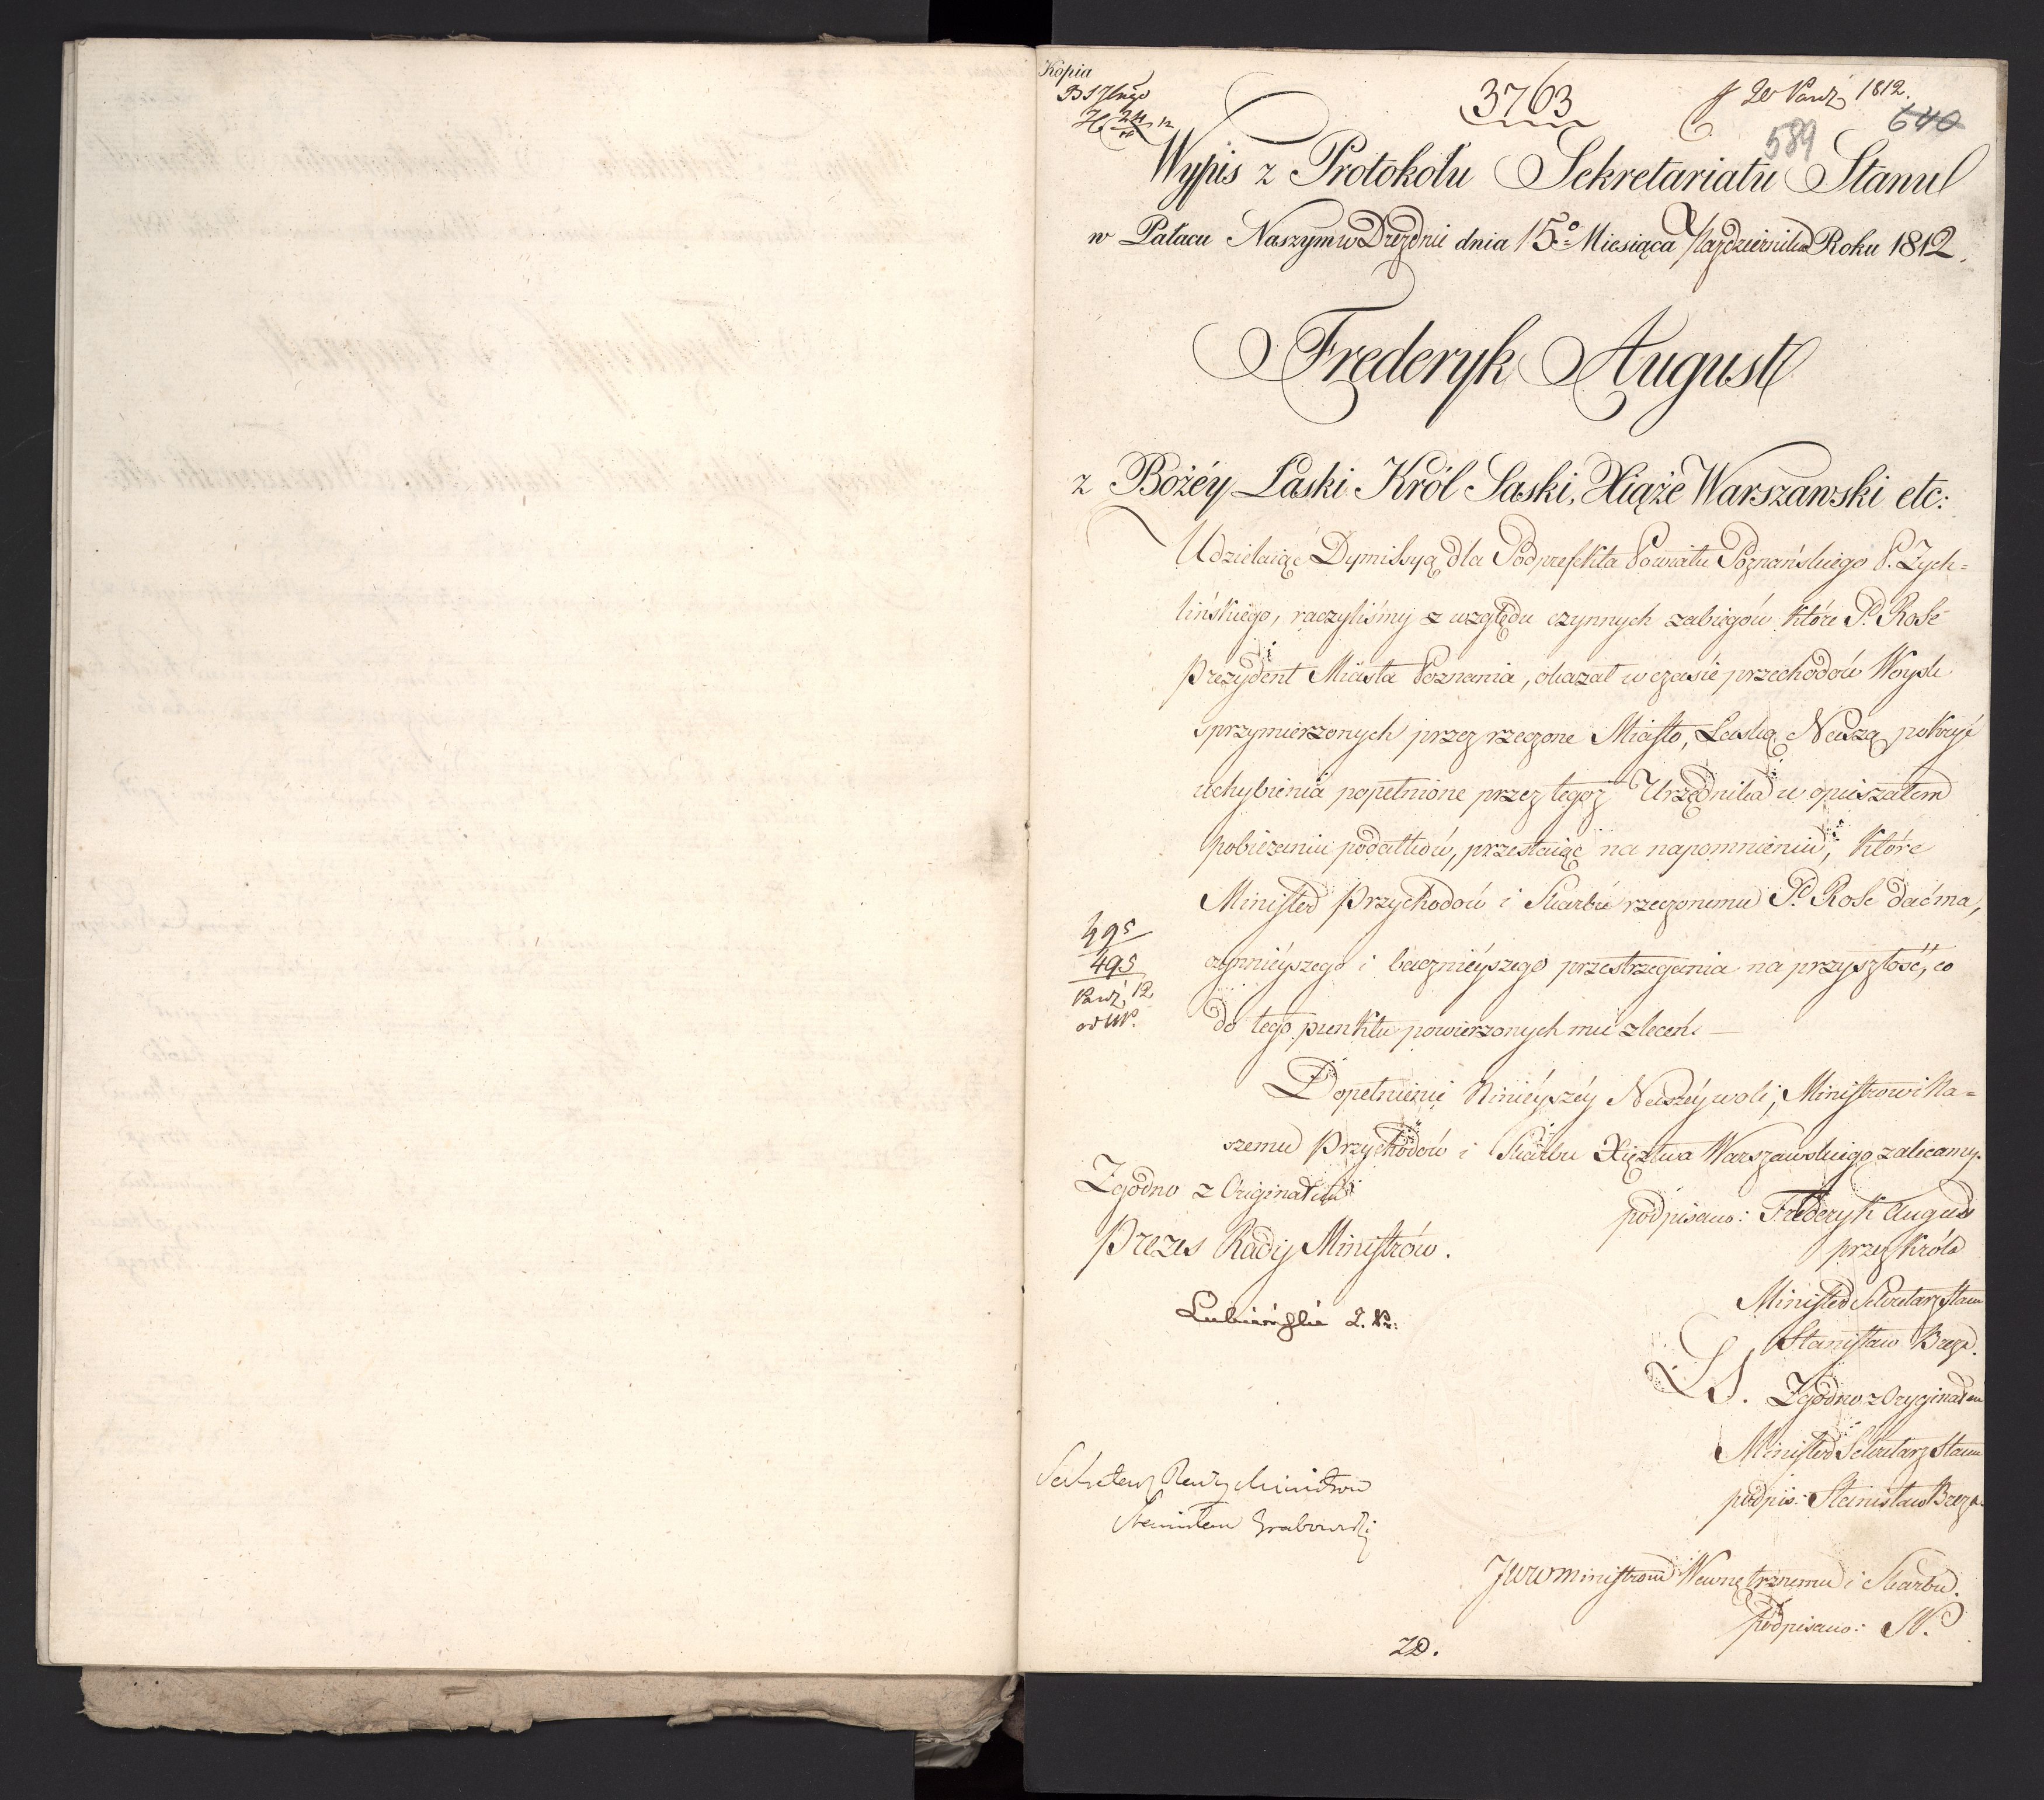 Kopia
3763
20 Paźd. 1812.
640
589
Wypis z Protokołu Sekretariatu Stanu
w Pałacu Naszym w Dreznie dnia 15º Miesiąca Października Roku 1812.
Frederyk August
z Bożéy Łaski Król Saski, Xiąże Warszawski etc:
Udzielaiąc Dymissyą dla Podprefekta Powiatu Poznańskiego P. Zych=
lińskiego, raczyliśmy z względu czynnych zabiegów które P. Rose
Prezydent Miasta Poznania, okazał w czasie przechodów Woysk
sprzymierzonych przez rzeczone Miasto, Łaską Naszą pokryć
uchybienia popełnione przez tegoż Urzędnika w opuszałem
pobieraniu podatków, przestaiąc na napomnieniu, które
Minister Przychodów i Skarbu rzeczonemu P. Rose dać ma,
czynnieyszego i bacznieyszego przestrzegania na przyszłość, co
495
495
Paźd. 12
do tego punktu powierzonych mu zleceń. —
Dopełnienie Ninieyszéy Naszéy woli, Ministrowi Na=
szemu Przychodów i Skarbu Xięztwa Warszawskiego zalecamy.
Zgodno z Originałem
podpisano: Frederyk August
Prezes Rady Ministrów.
przez Króla
Minister Sekretarz Stanu
Lubieński Z. P.:
Stanisław Breza.
LS. Zgodno z Oryginałem
Minister Sekretarz Stanu
Sekretarz Rady Ministrów
podpis: Stanisław Breza.
Stanisław Grabowski
JWW Ministrom Wewnętrznemu i Skarbu.
podpisano:
ZD.